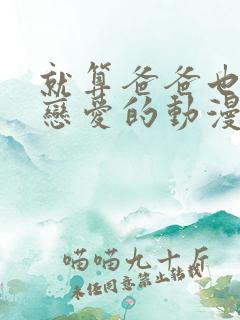 就算爸爸也
戀愛的動漫
喵喵九十斤
未经同意禁止转载